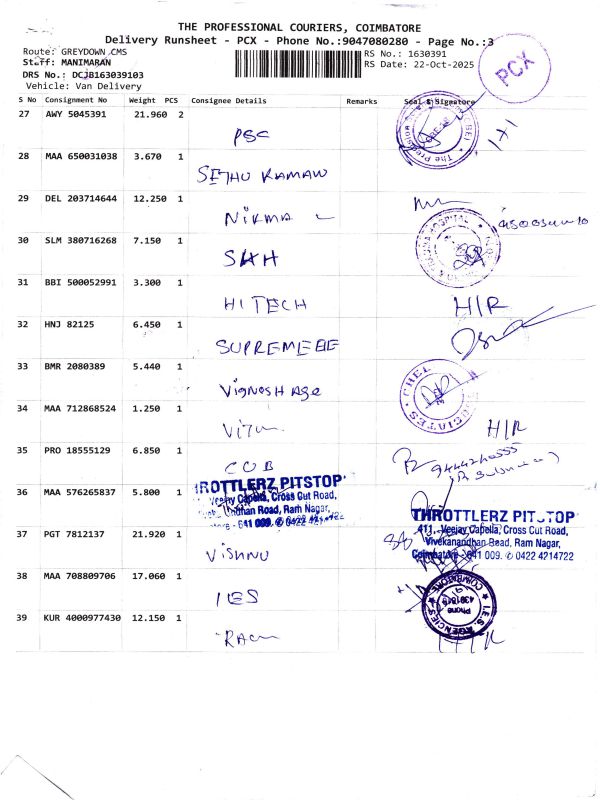 THE PROFESSIONAL COURIERS, COIMBATORE
Delivery Runsheet - PCX - Phone No.:9047080280 - Page No.:3
Route: GREYDOWN CMS
RS No.: 1630391
Staff: MANIMARAN
RS Date: 22-Oct-2025
DRS No.: DCJB163039103
Vehicle: Van Delivery
PCX
S No Consignment No Weight PCS Consignee Details Remarks Seal & Signature
27 AWY 5045391 21.960 2
PSG
28 MAA 650031038 3.670 1
SETHU RAMAN
29 DEL 203714644 12.250 1
NIRMA
30 SLM 380716268 7.150 1
SAH
31 BBI 500052991 3.300 1
HITECH H/R
32 HNJ 82125 6.450 1
SUPREME
33 BMR 2080389 5.440 1
VIGNOSH AGe
34 MAA 712868524 1.250 1
H/R
35 PRO 18555129 6.850 1
COB
36 MAA 576265837 5.800 1
THROTTLERZ PITSTOP
411, Veejay Capella, Cross Cut Road,
Vivekanandhan Road, Ram Nagar,
Coimbatore - 641 009. ✆ 0422 4214722
37 PGT 7812137 21.920 1
VISHNU
38 MAA 708809706 17.060 1
IES
I.E.S. AGENCIES
COIMBATORE
Phone
39 KUR 4000977430 12.150 1
H/R